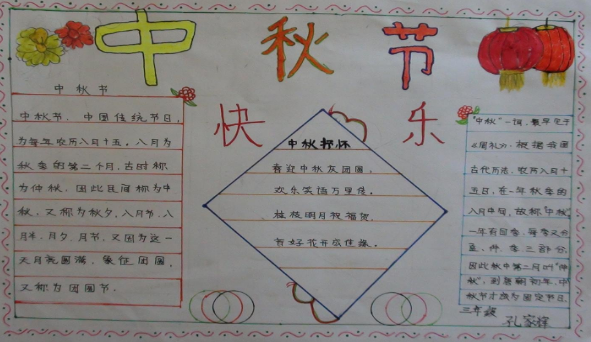 中秋节
快乐
中秋节
中秋节，中国传统节日，
为每年农历八月十五，八月为
秋季的第二个月，古时称
为仲秋，因此民间称为中
秋，又称为秋夕，八月节，八
月半，月夕，月节，又因为这一
天月亮圆满，象征团圆，
又称为团圆节。
中秋抒怀
喜迎中秋友团圆，
欢乐笑语万里传。
桂枝明月祝福贺，
花好
"中秋"一词，最早见于
《周礼》，根据我国
古代历法，农历八月十
五日，在一年秋季的
八月中旬，故称"中秋"
一年有四季，每季又分
孟、仲、季三部分，
因此秋中第二月叫"仲
秋"，到唐朝初年，中
秋节才成为固定节日。
三年级